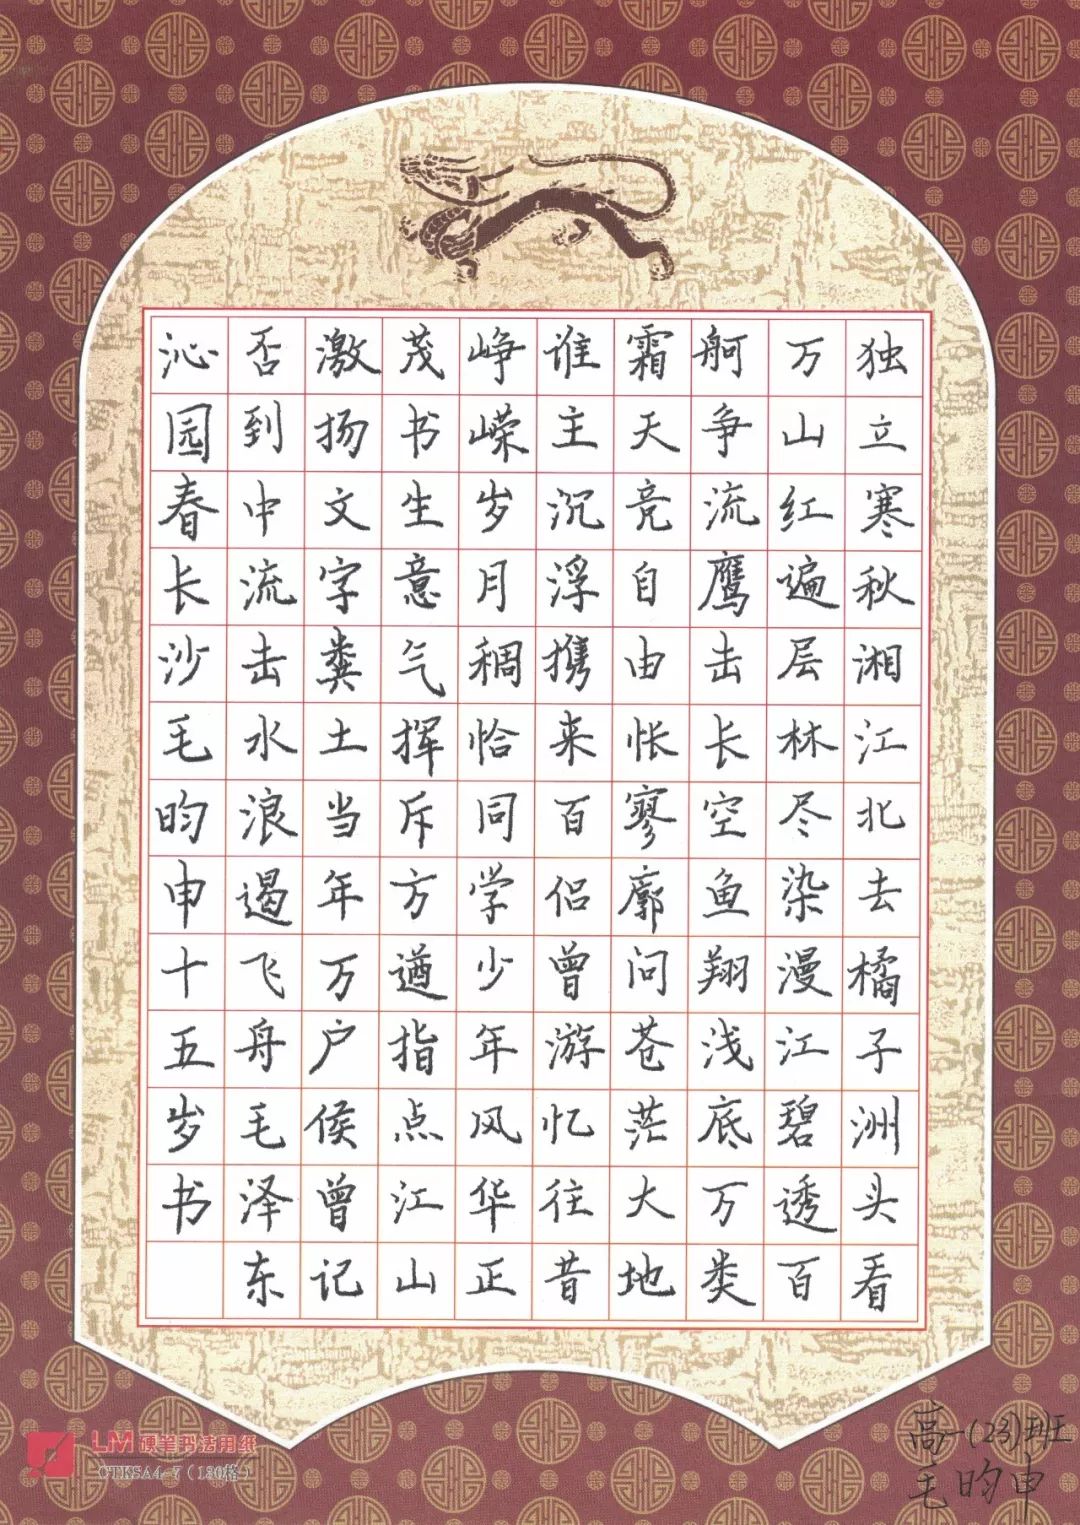 独立寒秋湘江北去橘子洲头看
万山红遍层林尽染漫江碧透百
舸争流鹰击长空鱼翔浅底万类
霜天竞自由怅寥廓问苍茫大地
谁主沉浮携来百侣曾游忆往昔
峥嵘岁月稠恰同学少年风华正
茂书生意气挥斥方遒指点江山
激扬文字粪土当年万户侯曾记
否到中流击水浪遏飞舟毛泽东
沁园春长沙毛昀申十五岁书
LM硬笔书法用纸
CTKSA4-7（130格）
高一(23)班
毛昀申